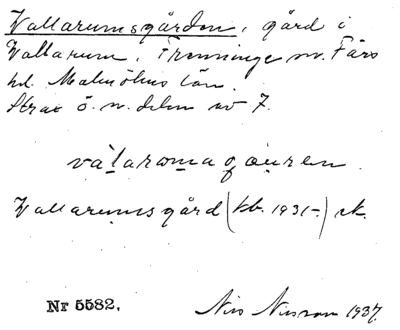 Vallarumsgården, gård i
Vallarum, Frenninge sn. Färs
hd. Malmöhus län.
Strax ö. n. delen av 7.
Vallarumsgård (kb. 1931-) sk.
Nr 5582. Nils Nilsson 1937